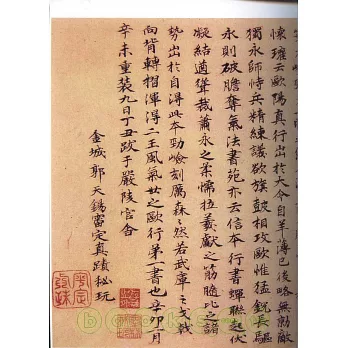 懷瓘云歐陽真行出於大令自羊薄已後略無勍敵
獨永師恃兵精練議欲旗鼓相攻歐惟猛銳長驅
永則破膽奪氣法書苑亦云信本行書蟬聯起伏
凝結遒聳裁蕭永之柔懦拉羲獻之筋髓比之諸
勢出於自得此本勁嶮刻厲森森然若武庫之戈戟
向背轉摺渾得二王風氣世之歐行第一書也辛卯一月
辛未重裝九日丁丑跋于嚴陵官舍
金城郭天錫審定真蹟秘玩